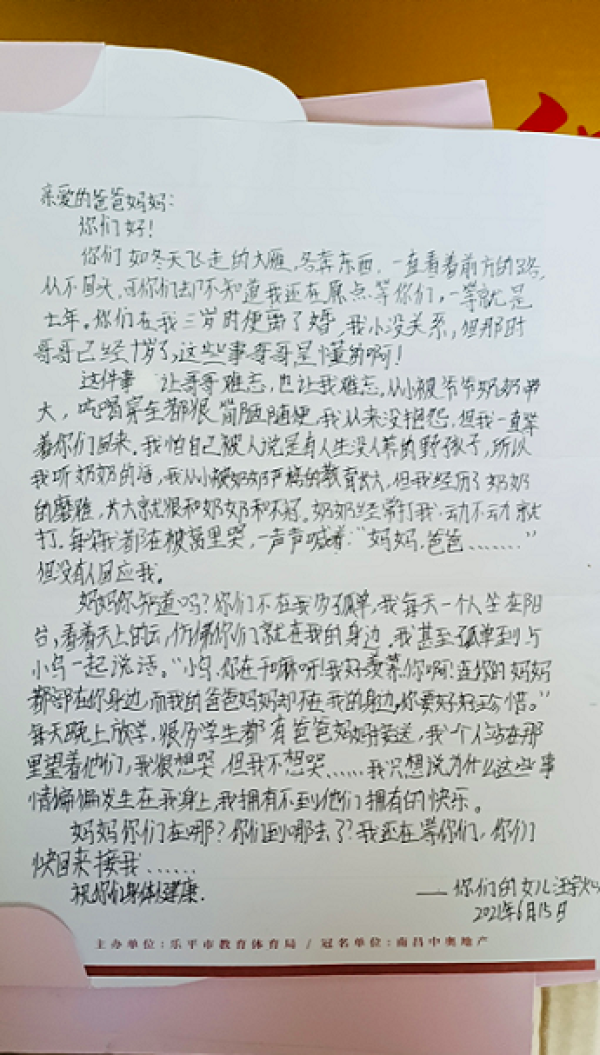 亲爱的爸爸妈妈:
你们好!
你们如冬天飞走的大雁,各奔东西,一直看着前方的路,
从不回头,可你们却不知道我还在原点等你们,一等就是
七年。你们在我三岁时便离了婚,我小没关系,但那时
哥哥已经十岁了,这些事哥哥是懂的啊!
这件事 让哥哥难忘,也让我难忘。从小被爷爷奶奶带
大,吃喝穿住都很简陋随便,我从来没抱怨,但我一直等
着你们回来。我怕自己被人说是有人生没人养的野孩子,所以
我听奶奶的话,我从小被奶奶严格的教育长大,但我经历了奶奶
的磨难,长大就很和奶奶和不好。奶奶经常打我,动不动就
打。每次我都在被窝里哭,一声声喊着:“妈妈,爸爸………”
但没有人回应我。
妈妈你知道吗?你们不在我多孤单,我每天一个人坐在阳
台,看着天上的云,仿佛你们就在我的身边。我甚至孤单到与
小鸟一起说话。“小鸟,你在干嘛呀!我好羡慕你啊!连你的妈妈
都都在你身边,而我的爸爸妈妈却不在我的身边,你要好好珍惜。”
每天晚上放学,很多学生都有爸爸妈妈接送,我一个人站在那
里望着他们,我很想哭,但我不想哭……我只想说为什么这些事
情偏偏发生在我身上,我拥有不到他们拥有的快乐。
妈妈你们在哪?你们到哪去了?我还在等你们,你们
快回来接我……
祝你们身体健康.
——你们的女儿汪
2021年6月15日
主办单位:乐平市教育体育局 / 冠名单位:南昌中奥地产